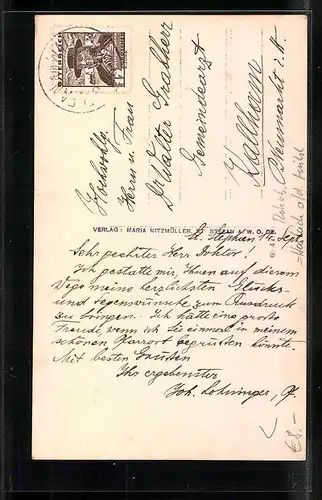 ÖSTERREICH
12
Hochwohlg.
Herrn u. Frau
Dr Walter
Gemeindearzt
Kallham
Neumarkt i. H.
VERLAG: MARIA KITZMÜLLER, ST. STEFAN A. W. O. OE.
St. Stephan 14. Sept.
Sehr geehrter Herr Doktor!
Ich gestatte mir, Ihnen auf diesem
Wege meine herzlichsten Glücks-
und Segenwünsche zum Ausdruck
zu bringen. Ich hätte eine große
Freude, wenn ich Sie einmal in meinem
schönen Pfarrort begrüßen könnte.
Mit besten Grüßen
Ihr ergebenster
Joh. Lohninger, Pf.
€8.-